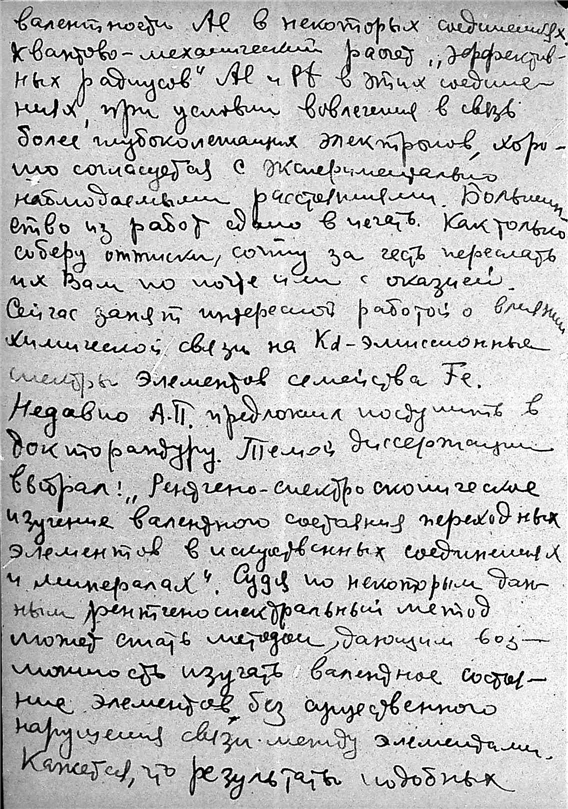 валентности Al в некоторых соединениях.
Квантово-механический расчет „эффектив-
ных радиусов" Al и Pt в этих соедине-
ниях, при условии вовлечения в связь
более глубоколежащих электронов, хоро-
шо согласуется с экспериментально
наблюдаемыми расстояниями. Большин-
ство из работ сдано в печать. Как только
соберу оттиски, сочту за честь переслать
их Вам по почте или с оказией.
Сейчас занят интересной работой о влиянии
химической связи на Kα-эмиссионные
спектры элементов семейства Fe.
Недавно А.П. предложил поступить в
докторантуру. Темой диссертации
выбрал: „Рентгено-спектроскопическое
изучение валентного состояния переходных
элементов в искуственных соединениях
и минералах". Судя по некоторым дан-
ным рентгеноспектральный метод
может стать методом, дающим воз-
можность изучать валентное состоя-
ние элементов без существенного
нарушения связи между элементами.
Кажется, что результаты подобных